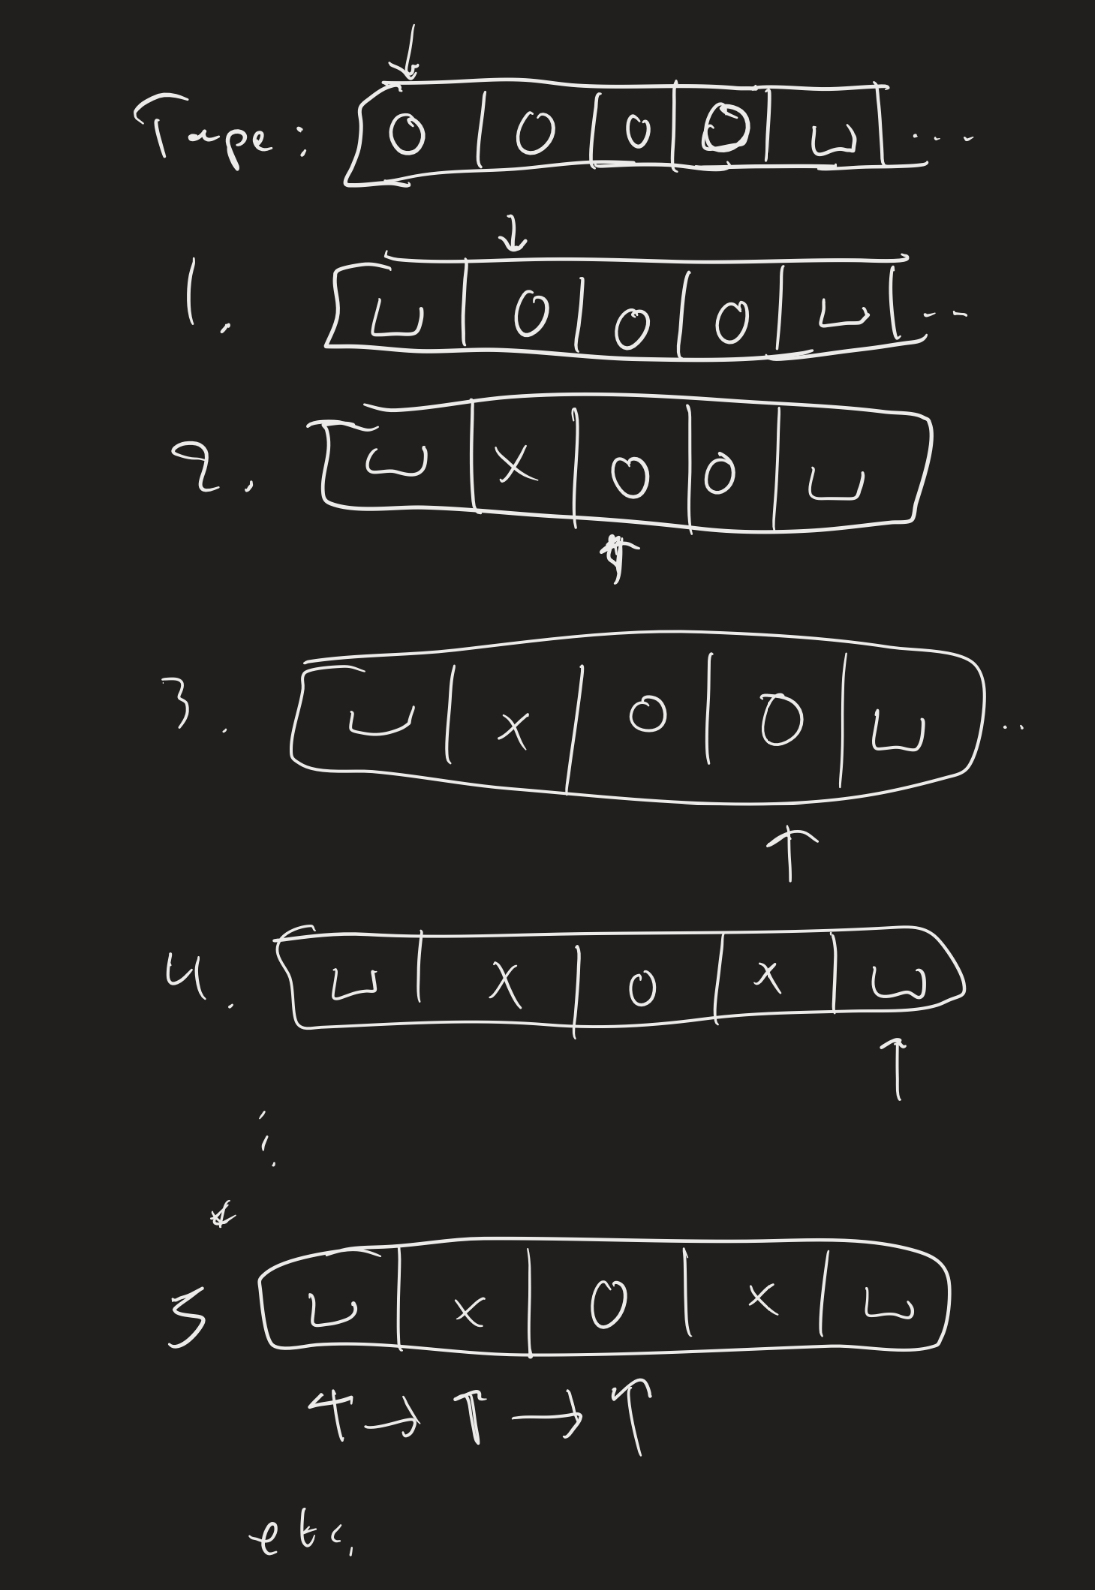 Tape: 0 | 0 | 0 | 0 | ⊔ | ...
1. ⊔ | 0 | 0 | 0 | ⊔ | ...
2. ⊔ | x | 0 | 0 | ⊔
3. ⊔ | x | 0 | 0 | ⊔ ..
4. ⊔ | x | 0 | x | ⊔
⋮
5 ⊔ | x | 0 | x | ⊔
↑ → ↑ → ↑
etc.